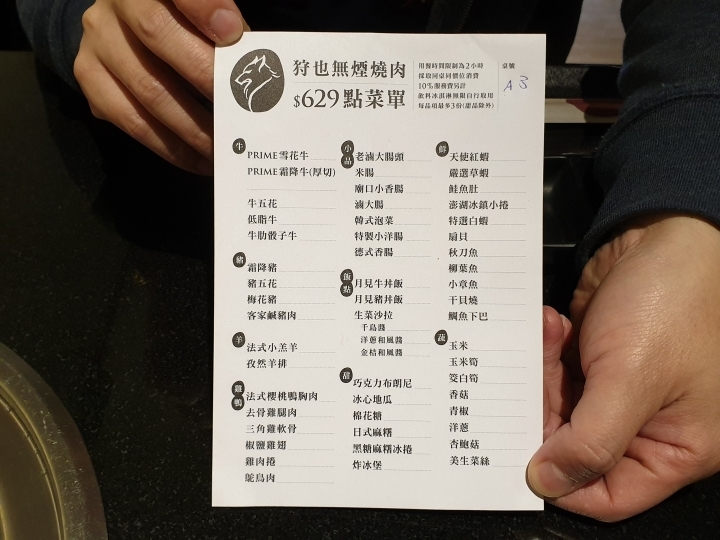 狩也無煙燒肉
$629點菜單
用餐時間限制為2小時
採取同桌同價位消費
10%服務費另計
飲料冰淇淋無限自行取用
每品項最多3份(甜品除外)
桌號
A3
牛
PRIME雪花牛
PRIME霜降牛(厚切)
牛五花
低脂牛
牛肋骰子牛
豬
霜降豬
豬五花
梅花豬
客家鹹豬肉
羊
法式小羔羊
孜然羊排
雞鴨
法式櫻桃鴨胸肉
去骨雞腿肉
三角雞軟骨
椒鹽雞翅
雞肉捲
鴕鳥肉
小品
老滷大腸頭
米腸
廟口小香腸
滷大腸
韓式泡菜
特製小洋腸
德式香腸
飯點
月見牛丼飯
月見豬丼飯
生菜沙拉
千島醬
洋蔥和風醬
金桔和風醬
甜
巧克力布朗尼
冰心地瓜
棉花糖
日式麻糬
黑糖麻糬冰捲
炸冰堡
鮮
天使紅蝦
嚴選草蝦
鮭魚肚
澎湖冰鎮小捲
特選白蝦
扇貝
秋刀魚
柳葉魚
小章魚
干貝燒
鯛魚下巴
蔬
玉米
玉米筍
筊白筍
香菇
青椒
洋蔥
杏鮑菇
美生菜絲